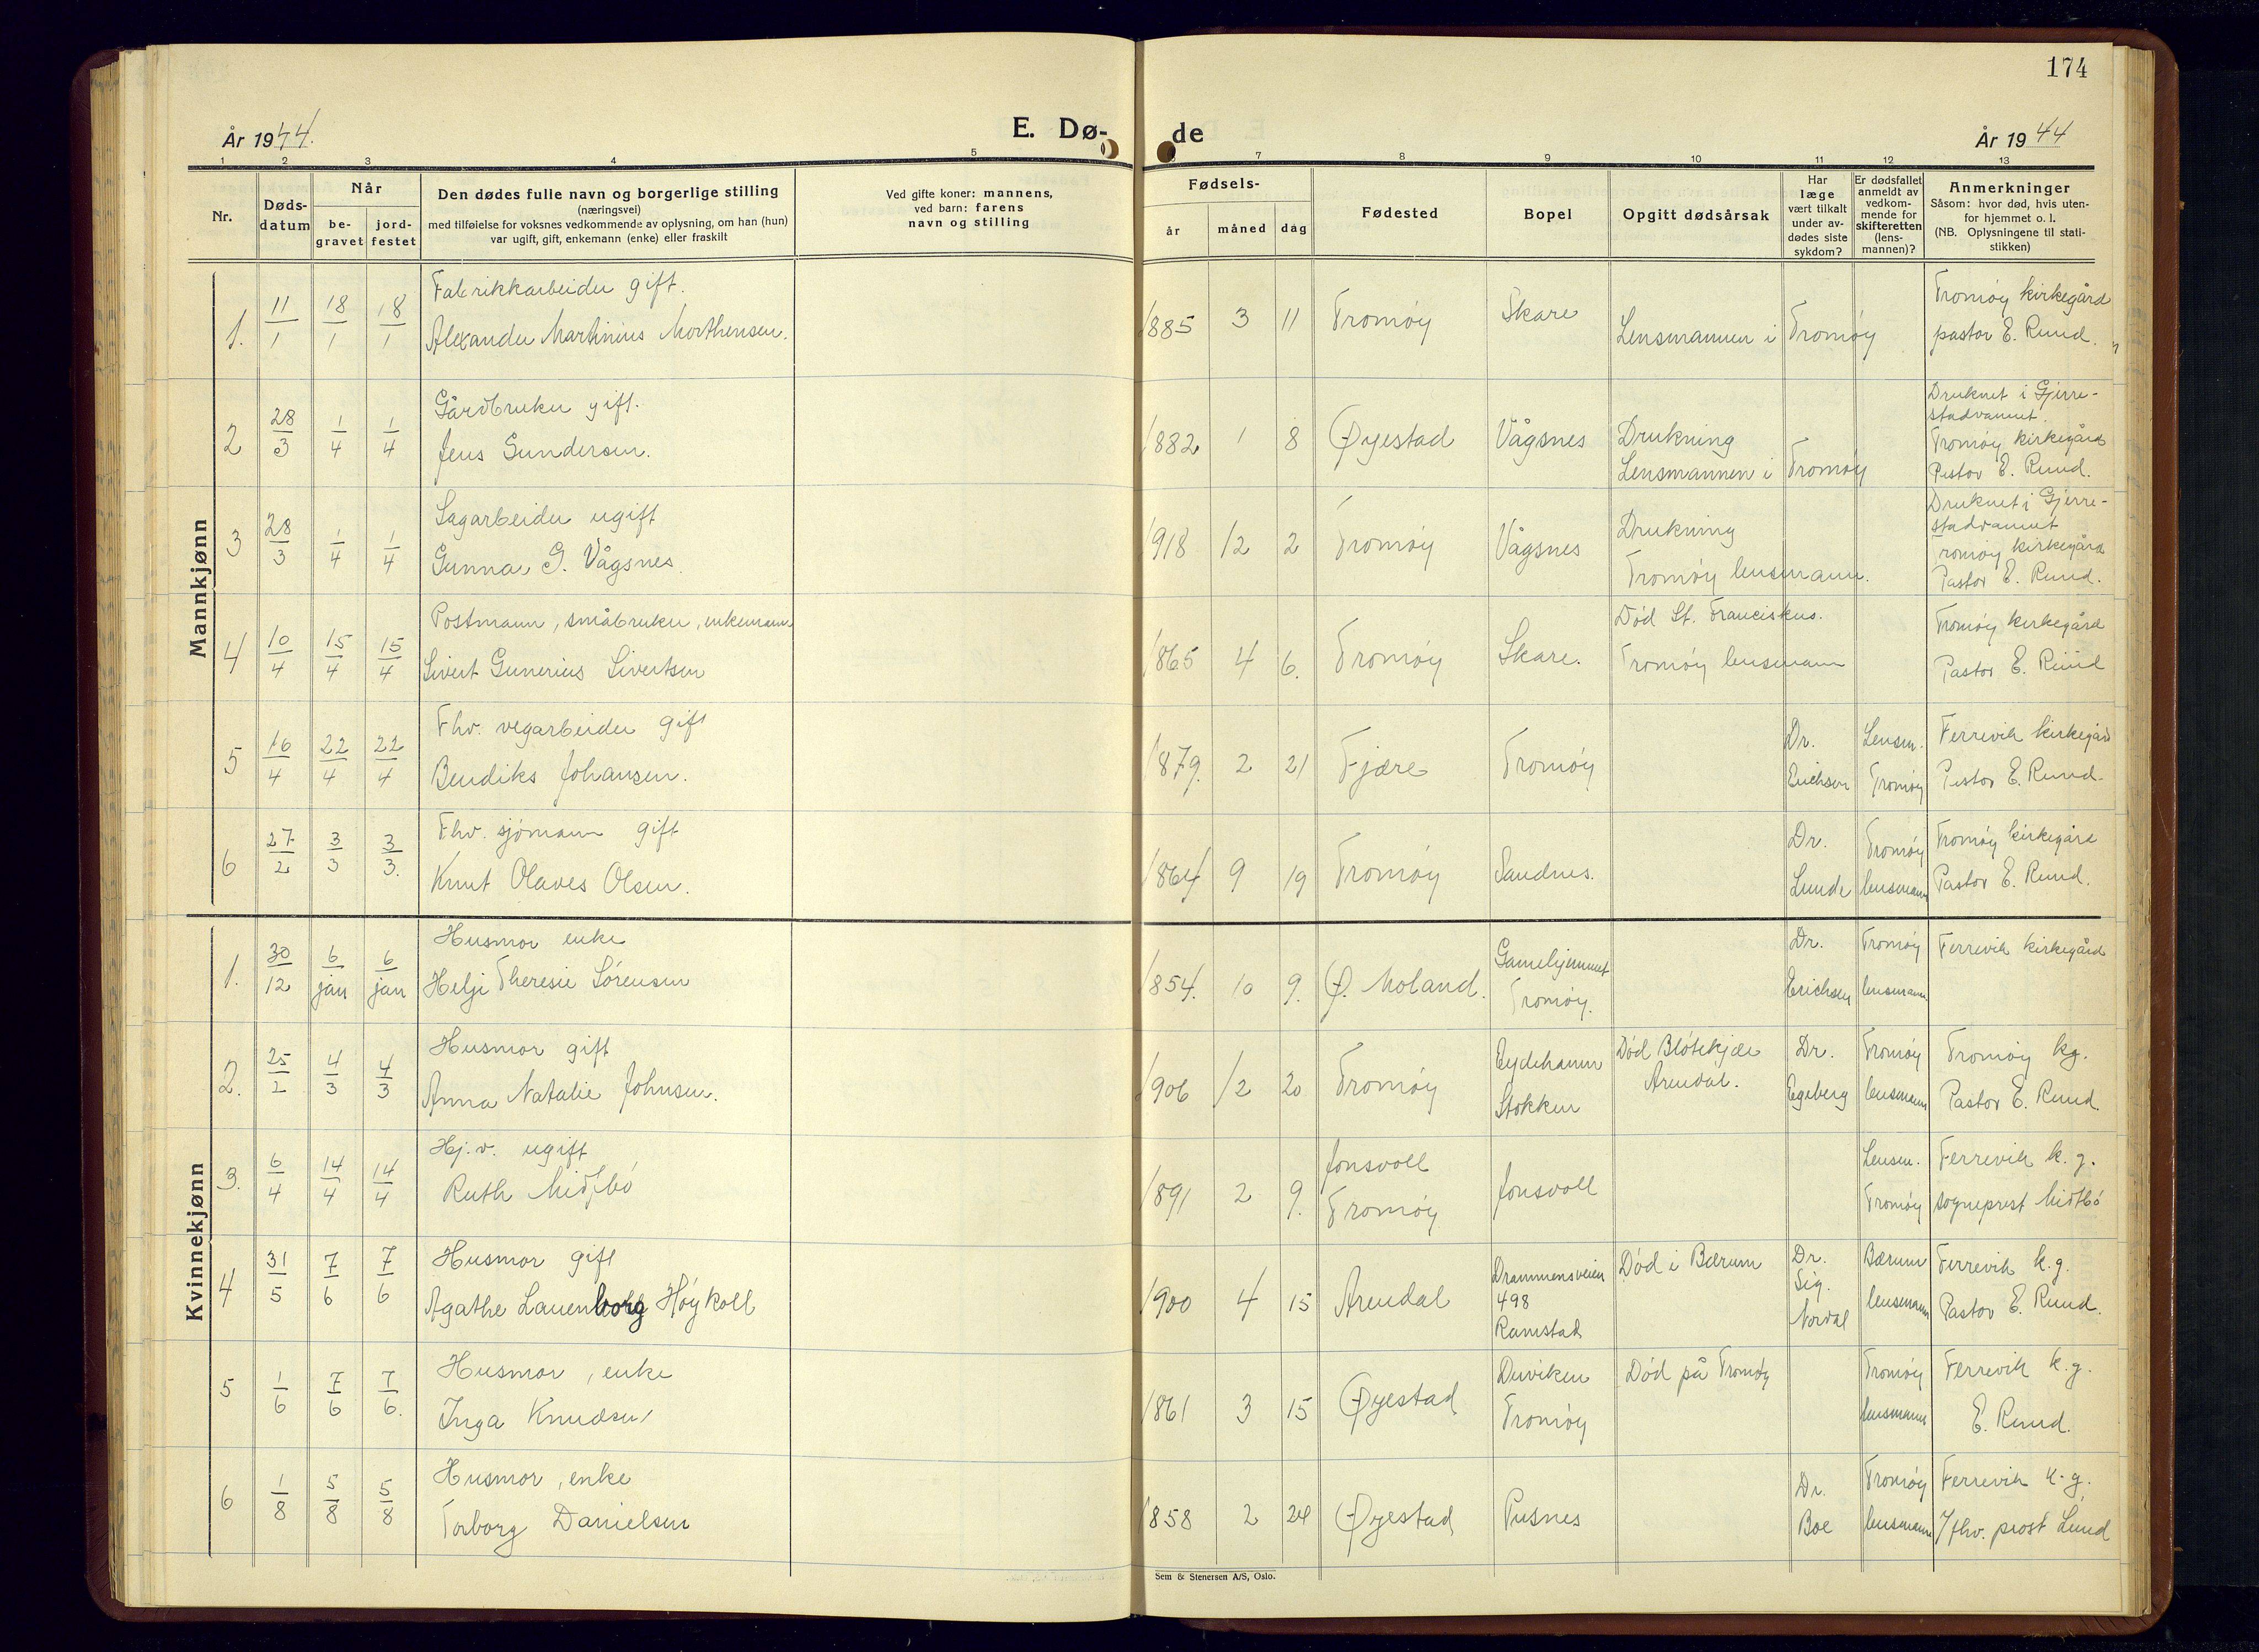 174
År 1944.
E. Dø-
de
År 1944
1 2 3 4 5 7 8 9 10 11 12 13
Nr.
Døds-
datum
Når
be-
gravet
jord-
festet
Den dødes fulle navn og borgerlige stilling
(næringsvei)
med tilføielse for voksnes vedkommende av oplysning, om han (hun)
var ugift, gift, enkemann (enke) eller fraskilt
Ved gifte koner: mannens,
ved barn: farens
navn og stilling
Fødsels-
år
måned
dag
Fødested
Bopel
Opgitt dødsårsak
Har
læge
vært tilkalt
under av-
dødes siste
sykdom?
Er dødsfallet
anmeldt av
vedkom-
mende for
skifteretten
(lens-
mannen)?
Anmerkninger
Såsom: hvor død, hvis uten-
for hjemmet o. l.
(NB. Oplysningene til stati-
stikken)
Mannkjønn
1. 11/1 18/1 18/1
Fabrikkarbeider gift.
Alexander Martinius Morthensen.
1885 3 11 Tromøy Skare
Lensmannen i Tromøy
Tromøy kirkegård
pastor E. Ruud.
2 28/3 1/4 1/4
Gårdbruker gift.
Jens Gundersen.
1882 1 8 Øyestad Vågsnes
Drukning
Lensmannen i Tromøy
Druknet i Gjerre-
stadvannet.
Tromøy kirkegård
Pastor E. Ruud.
3 28/3 1/4 1/4
Sagarbeider ugift
Gunnar G. Vågsnes.
1918 12 2 Tromøy Vågsnes
Drukning
Tromøy lensmann.
Druknet i Gjerre-
stadvannet
Tromøy kirkegård
Pastor E. Ruud.
4 10/4 15/4 15/4
Postmann, småbruker, enkemann
Sivert Gunerius Sivertsen
1865 4 6. Tromøy Skare.
Død St. Franciskus.
Tromøy lensmann
Tromøy kirkegård
Pastor E. Ruud
5 16/4 22/4 22/4
Fhv. vegarbeider gift
Bendiks Johansen.
1879. 2 21 Fjære Tromøy
Dr.
Erichsen
Lensm.
Tromøy
Ferrevik kirkegård
Pastor E. Ruud.
6 27/2 3/3 3/3.
Fhv. sjømann gift
Knut Olaves Olsen.
1864 9 19 Tromøy Sandnes.
Dr.
Lunde
Tromøy
lensmann
Tromøy kirkegård
Pastor E. Ruud.
Kvinnekjønn
1. 30/12 6/jan 6/jan
Husmor enke
Helje Theresie Sørensen
1854. 10 9. Ø. Moland.
Gamlehjemmet
Tromøy.
Dr.
Erichsen
Tromøy
lensmann
Ferrevik kirkegård
2. 25/2 4/3 4/3
Husmor gift
Anna Natalie Johnsen.
1906 12 20 Tromøy
Eydehamn
Stokken
Død Bløtekjær
Arendal.
Dr.
Egeberg
Tromøy
lensmann
Tromøy kg.
Pastor E. Ruud.
3. 6/4 14/4 14/4
Hj.v. ugift
Ruth Midtbø
1891 2 9.
Jonsvoll
Tromøy
Jonsvoll
Lensm.
Tromøy
Ferrevik k.g.
sogneprest Midtbø
4 31/5 7/6 7/6
Husmor gift
Agathe Lauenborg Høykoll
1900 4 15 Arendal
Drammensveien
498
Ramstad
Død i Bærum
Dr.
Sig.
Nordal
Bærum
lensmann
Ferrevik k.g.
Pastor E. Ruud.
5 1/6 7/6 7/6.
Husmor, enke
Inga Knudsen
1861 3 15 Øyestad
Tromøy
Død på Tromøy
Tromøy
lensmann
Ferrevik k.g.
E. Ruud.
6 1/8 5/8 5/8
Husmor, enke
Torborg Danielsen
1858 2 24 Øyestad Pusnes
Dr.
Boe
Tromøy
lensmann
Ferrevik k.g.
fhv. prost Lund
Sem & Stenersen A/S, Oslo.